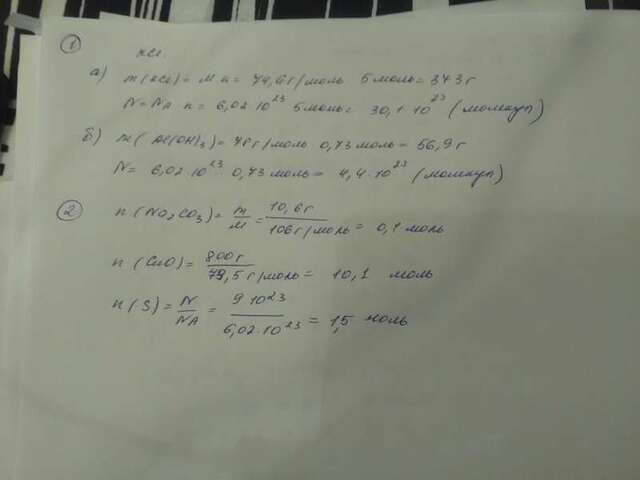 ① KCl.
а) m(KCl) = M·n = 74,6 г/моль 5 моль = 373 г
N = NA n = 6,02·10²³ 5 моль = 30,1·10²³ (молекул)
б) m(Al(OH)₃) = 78 г/моль 0,73 моль = 56,9 г
N = 6,02·10²³ 0,73 моль = 4,4·10²³ (молекул)
② n(Na₂CO₃) = m/M = 10,6 г / 106 г/моль = 0,1 моль
n(CuO) = 800 г / 79,5 г/моль = 10,1 моль
n(S) = N/NA = 9 10²³ / 6,02·10²³ = 1,5 моль